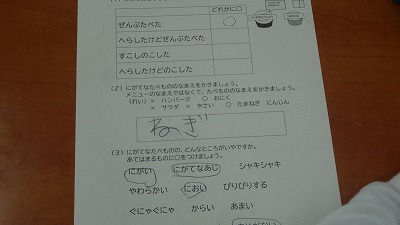 どれかに○
ぜんぶたべた ○
へらしたけどぜんぶたべた
すこしのこした
へらしたけどのこした
(2) にがてなたべもののなまえをかきましょう。
メニューのなまえではなくて、たべもののなまえをかきましょう。
(れい) × ハンバーグ ○ おにく
× サラダ × やさい ○ たまねぎ にんじん
ねぎ
(3) にがてなたべものの、どんなところがいやですか。
あてはまるものに○をつけましょう。
にがい にがてなあじ シャキシャキ
やわらかい におい ぴりぴりする
ぐにゃぐにゃ からい あまい